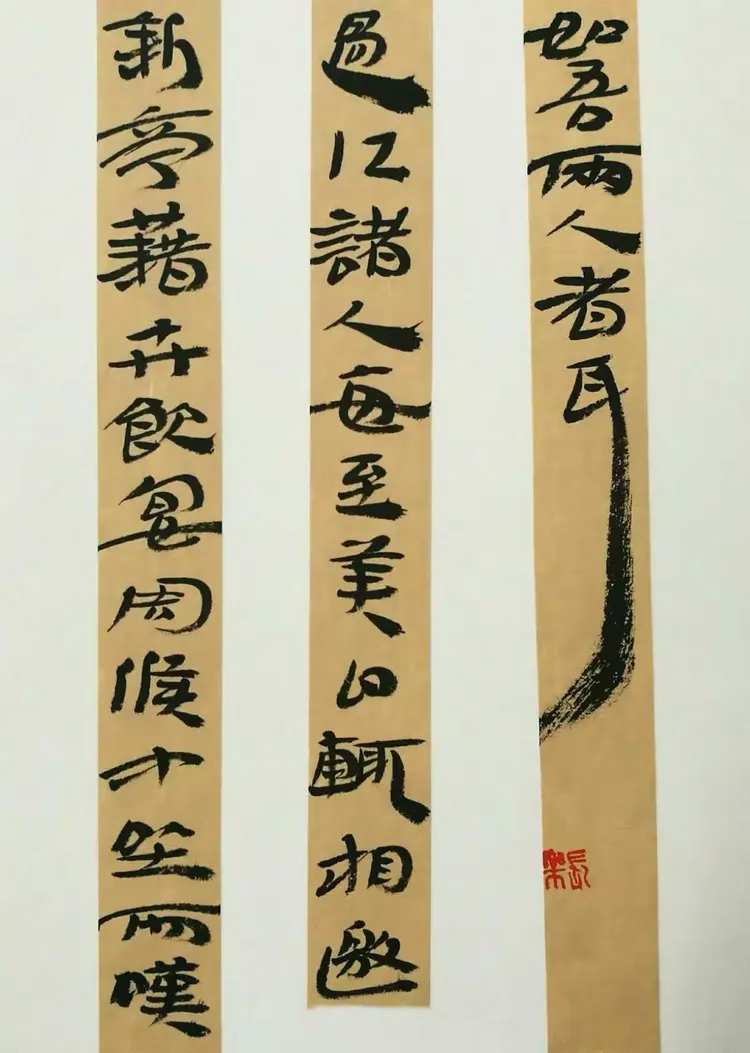 如吾兩人者耳
過江諸人每至美日輒相邀
新亭藉卉飲宴周侯中坐而嘆